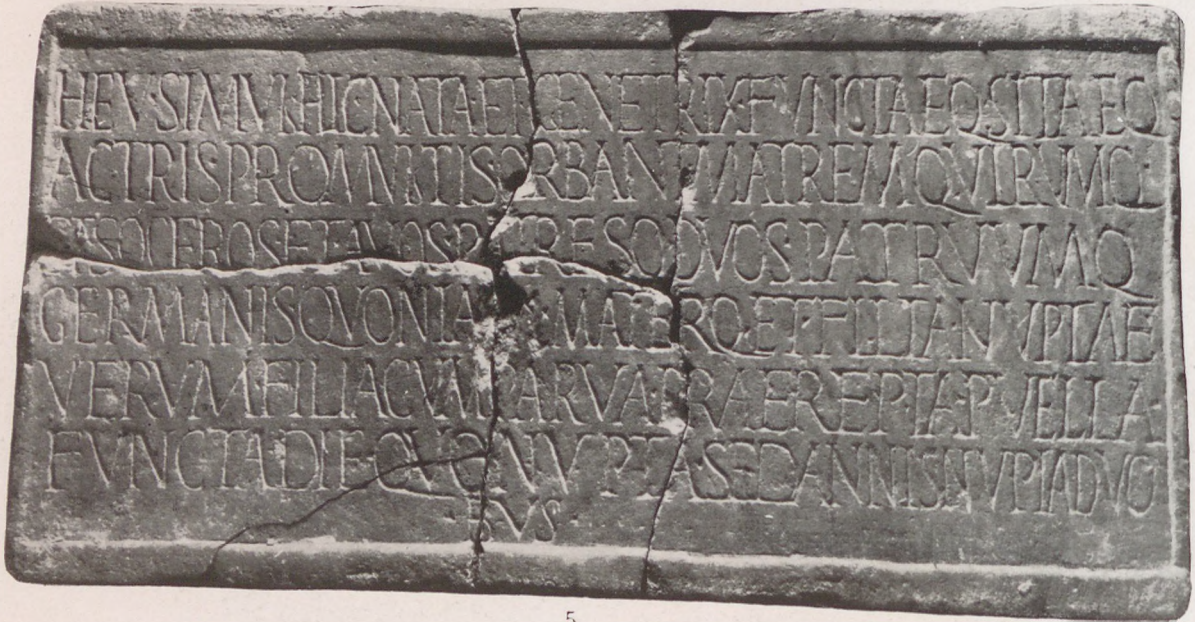 HEV·SIMVL·HIC·NATA·ET·GENETRIX·FVNCTAEQ·SITAEQ
ACTRIS PRO MVLTIS ORBANT MATREMQ VIRVMQ
SOCEROS ET AVOS DVOS·PATRVVMQ
GERMANIS QVONIA MATERQ·ET·FILIA·NVPTAE
VERVM FILIA CVM PARVA PRAEREPTA·PVELLA·
FVNCTA DIE QVO NVPTA·SED ANNIS NVPTA DVO
BVS
5